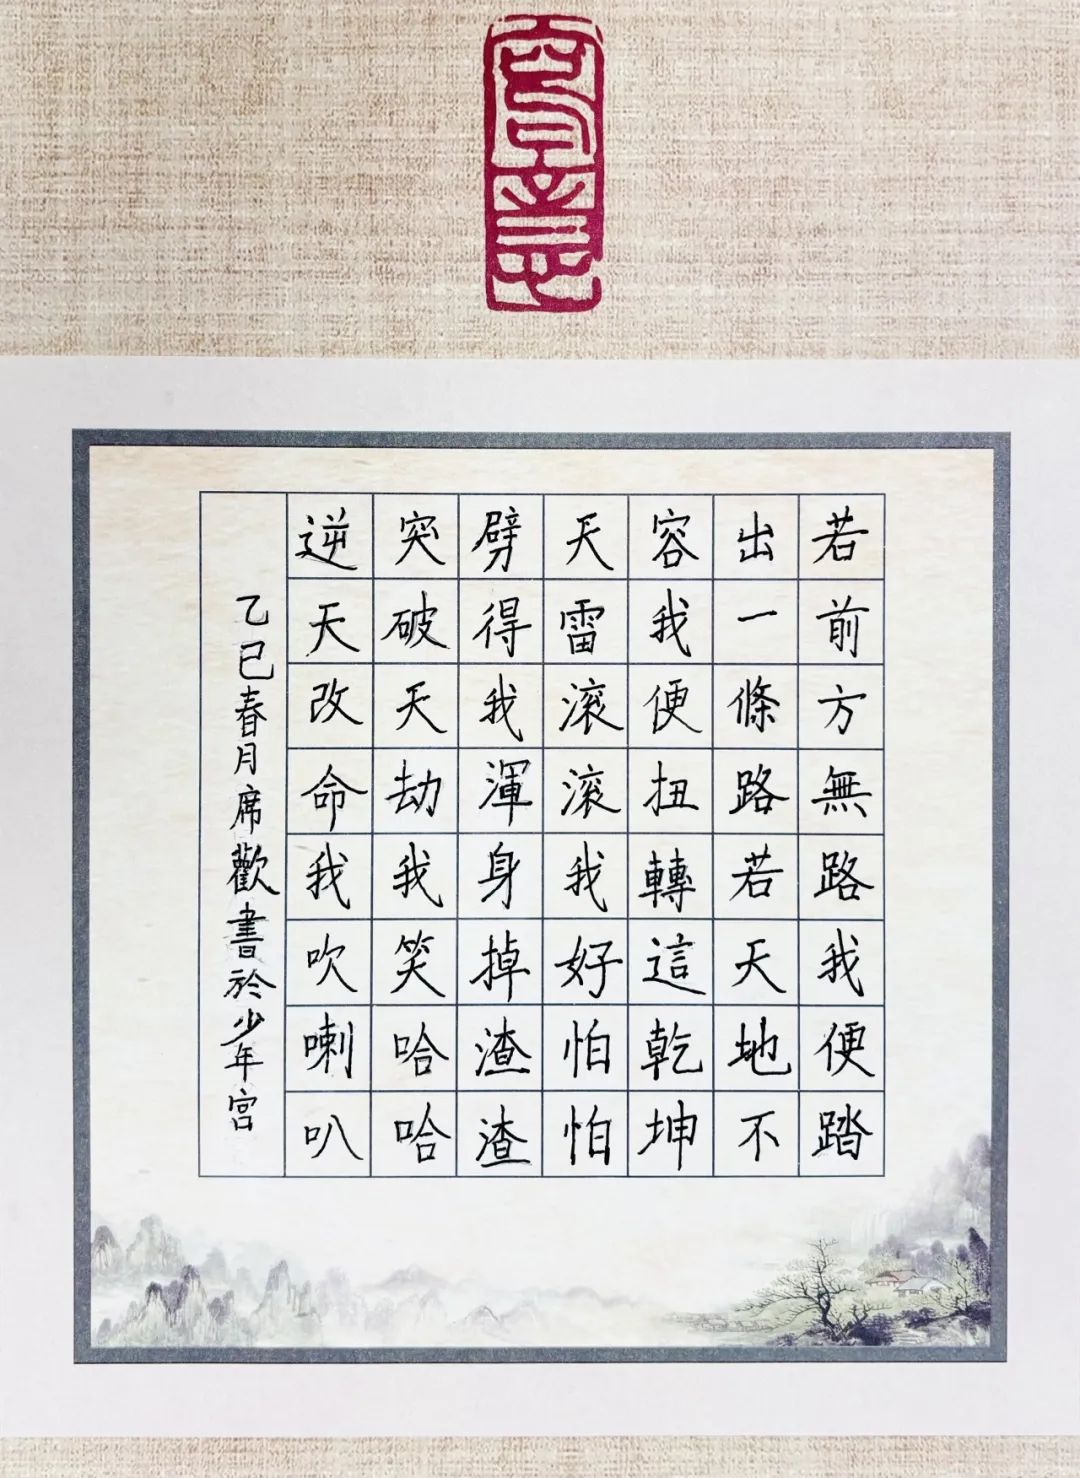 若前方無路我便踏
出一條路若天地不
容我便扭轉這乾坤
天雷滚滚我好怕怕
劈得我渾身掉渣渣
突破天劫我笑哈哈
逆天改命我吹喇叭
乙巳春月席歡書於少年宮